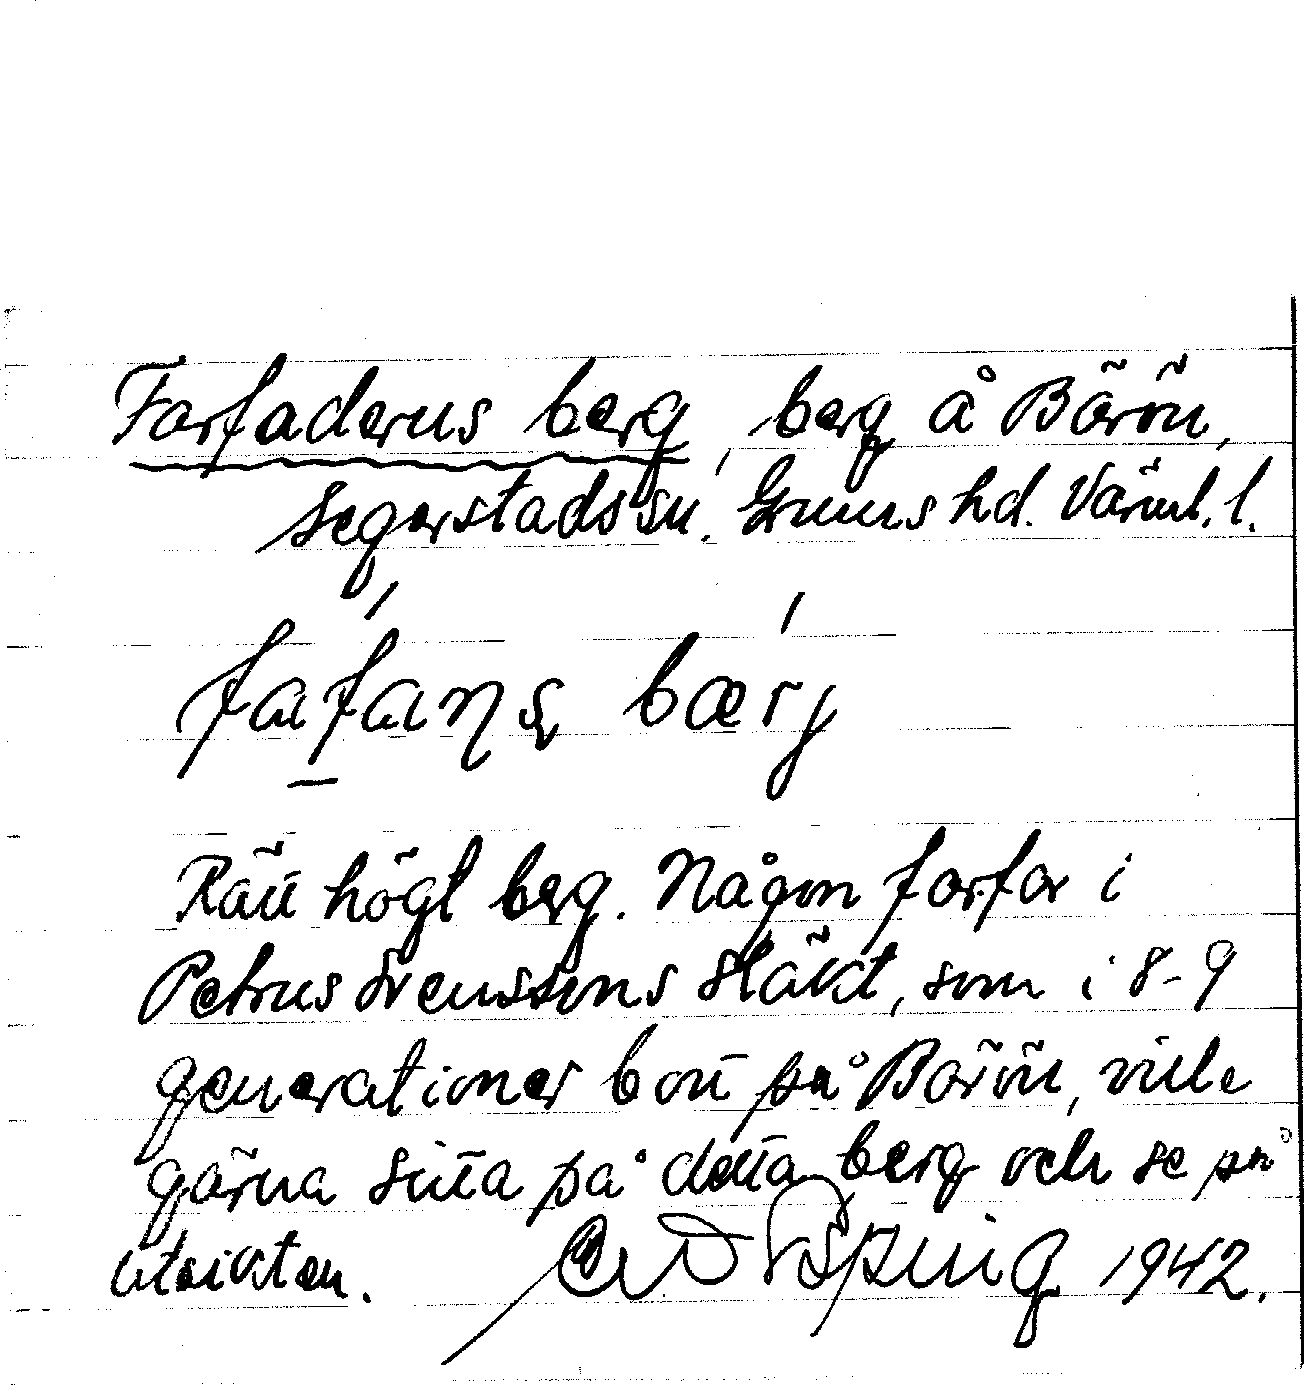 Farfaderns berg, berg å Bärön,
Segerstads sn. Grums hd. Värml. l.
fafaŋs bærj
Rätt högt berg. Någon farfar i
Petrus Svenssons släkt, som i 8-9
generationer bott på Bärön, ville
gärna sitta på detta berg och se på
utsikten. 1942.